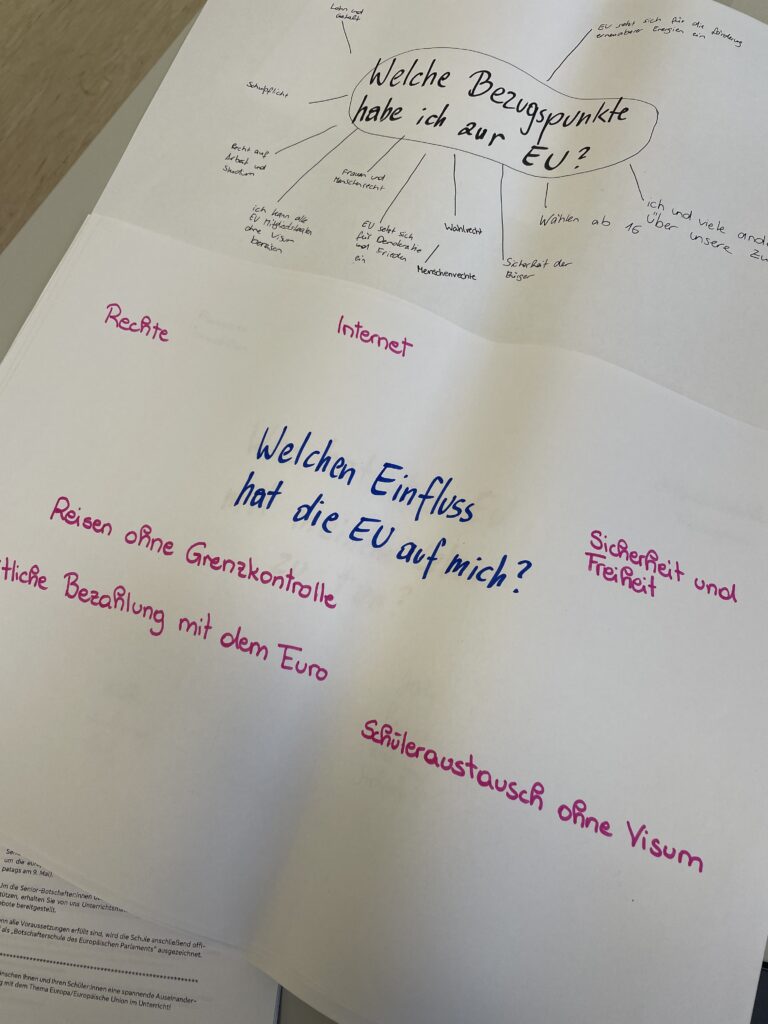 Lohn und
Gehalt
EU setzt sich für die Förderung
erneuerbarer Energien ein
Welche Bezugspunkte
habe ich zur EU?
Schulpflicht
Recht auf
Arbeit und
Studium
Frauen und
Menschenrecht
ich kann alle
EU Mitgliedstaaten
ohne Visum
bereisen
EU setzt sich
für Demokratie
und Frieden
ein
Wahlrecht
Menschenrechte
Sicherheit der
Bürger
Wählen ab 16
ich und viele and
über unsere Zu
Rechte
Internet
Welchen Einfluss
hat die EU auf mich?
Reisen ohne Grenzkontrolle
tliche Bezahlung mit dem Euro
Sicherheit und
Freiheit
Schüleraustausch ohne Visum
um die
patags am 9. Mai).
Um die Senior-Botschafter:innen
tützen, erhalten Sie von uns
bote bereitgestellt.
nn alle Voraussetzungen erfüllt sind, wird die Schule anschließend offi-
als „Botschafterschule des Europäischen Parlaments" ausgezeichnet.
nschen Ihnen und Ihren Schüler:innen eine spannende Auseinander-
g mit dem Thema Europa/Europäische Union im Unterricht!